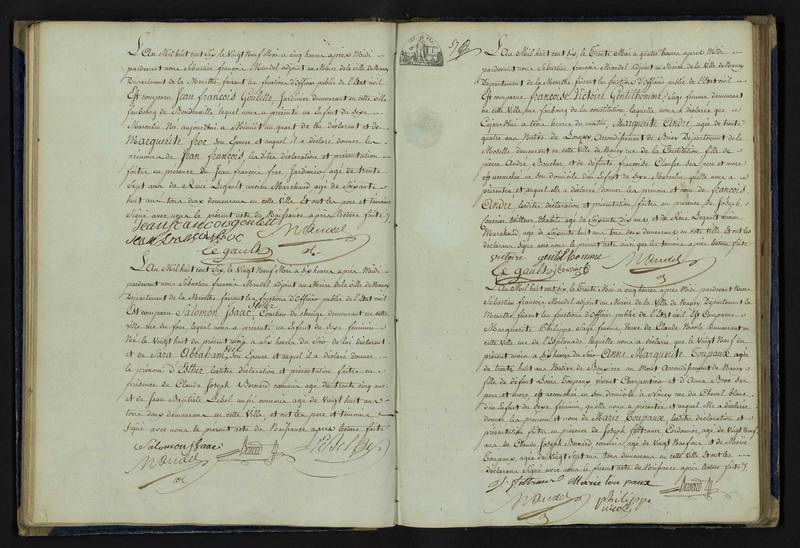 L'An Mil huit cent dix, le Vingt Neuf Mai a cinq heures après Midi
pardevant nous Sébastien françois Mandel adjoint au Maire de la ville de Nancy
Département de la Meurthe, faisant les fonctions d'officier public de l'Etat civil
Est comparu Jean françois Goulette Jardinier demeurant en cette ville
faubourg de lequel nous a présenté un Enfant du Sexe
Masculin Né aujourd'hui a du lui déclarant et de
Marguerite froc son Epouse et auquel il a déclaré donner les
prénoms de Jean françois, lesdites déclaration et présentation
faites en présence de Jean françois froc Jardinier, agé de trente
Sept ans et de René Legault ancien Marchand agé de Soixante
huit ans tous deux demeurans en cette Ville Et ont les pere et témoins
Signé avec nous le présent acte de Naissance après lecture faite
Jean francois goulette
Jean francois froc
Mandel
Le gault
L'An Mil huit cent dix, le Vingt Neuf Mai a six heures après Midi
pardevant nous Sébastien françois Mandel adjoint au Maire de la ville de Nancy
Département de la Meurthe, faisant les fonctions d'officier public de l'Etat civil
Est comparu Salomon Isaac Courtier de change demeurant en cette
ville rue de lequel nous a présenté un Enfant du Sexe féminin
Né le Vingt huit du présent mois a six heures du Soir de lui déclarant
et de Sara Abraham son Epouse et auquel il a déclaré donner
le prénom d'Esther lesdites déclaration et présentation faites en
présence de Claude Joseph Bernard commis agé de trente cinq ans
et de Jean Baptiste Lebel aussi commis agé de Vingt huit ans
tous deux demeurans en cette Ville et ont les pere et témoins
Signé avec nous le présent acte de Naissance après lecture faite
Salomon Isaac
Mandel
57
L'An Mil huit cent dix, le Trente Mai a quatre heures après Midi
pardevant nous Sébastien françois Mandel adjoint au Maire de la Ville de Nancy
Département de la Meurthe faisant les fonctions d'officier public de l'Etat civil
Est comparue françoise Victoire Gentilhomme Sage femme demeurant
en cette Ville faubourg de la constitution laquelle nous a déclaré que
aujourd'hui a heures du matin, Marguerite André agée de trente
quatre ans Native de Longwy arrondissement de Briey Département de la
Moselle demeurant en cette Ville de Nancy rue de la Constitution fille de
pierre André Boucher et de défunte françoise ses pere et mere
est accouchée en son domicile d'un Enfant du Sexe Masculin qu'elle nous a
présenté et auquel elle a déclaré donner les prénom et nom de françois
André lesdites déclaration et présentation faites en présence de Joseph
agé de Soixante dix ans et de René Legault ancien
Marchand, agé de Soixante huit ans tous deux demeurans en cette Ville Et ont les
déclarans Signé avec nous le présent acte ainsi que les témoins après lecture faite
victoire gentilhomme
Mandel
Le gault
L'An Mil huit cent dix, le Trente Mai a cinq heures après Midi pardevant Nous
Sébastien françois Mandel adjoint au Maire de la Ville de Nancy Département de la
Meurthe faisant les fonctions d'officier public de l'Etat civil Est Comparue
Marguerite Philippe Sage femme, Veuve de Claude Nicolo demeurant en
cette Ville rue de l'Esplanade laquelle nous a déclaré que le Vingt Neuf du
présent mois a Six heures du Soir Anne Marguerite Toupaux agée
de trente huit ans Native de arrondissement de Nancy
fille de défunt Louis Toupaux vivant Charpentier et d'Anne ses
pere et mere, est accouchée en son domicile a Nancy rue du Cheval blanc
d'un Enfant du Sexe féminin, qu'elle nous a présenté et auquel elle a déclaré
donner les prénom et nom de Marie Toupaux lesdites déclaration et
présentation faites en présence de Joseph Cordonnier agé de Vingt Neuf
ans de Claude Joseph Bernard commis agé de et de Marie
Toupaux agée de Vingt Sept ans tous demeurans en cette Ville Et ont les
déclarans Signé avec nous le présent acte de Naissance après lecture faite
Marie tou paux
Mandel
philippe
nicolo